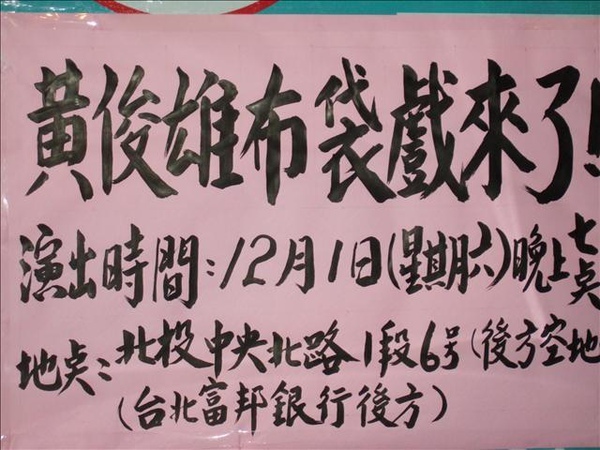 黃俊雄布袋戲來了!
演出時間:12月1日(星期六)晚上七点
地点:北投中央北路1段6号(後方空地
(台北富邦銀行後方)